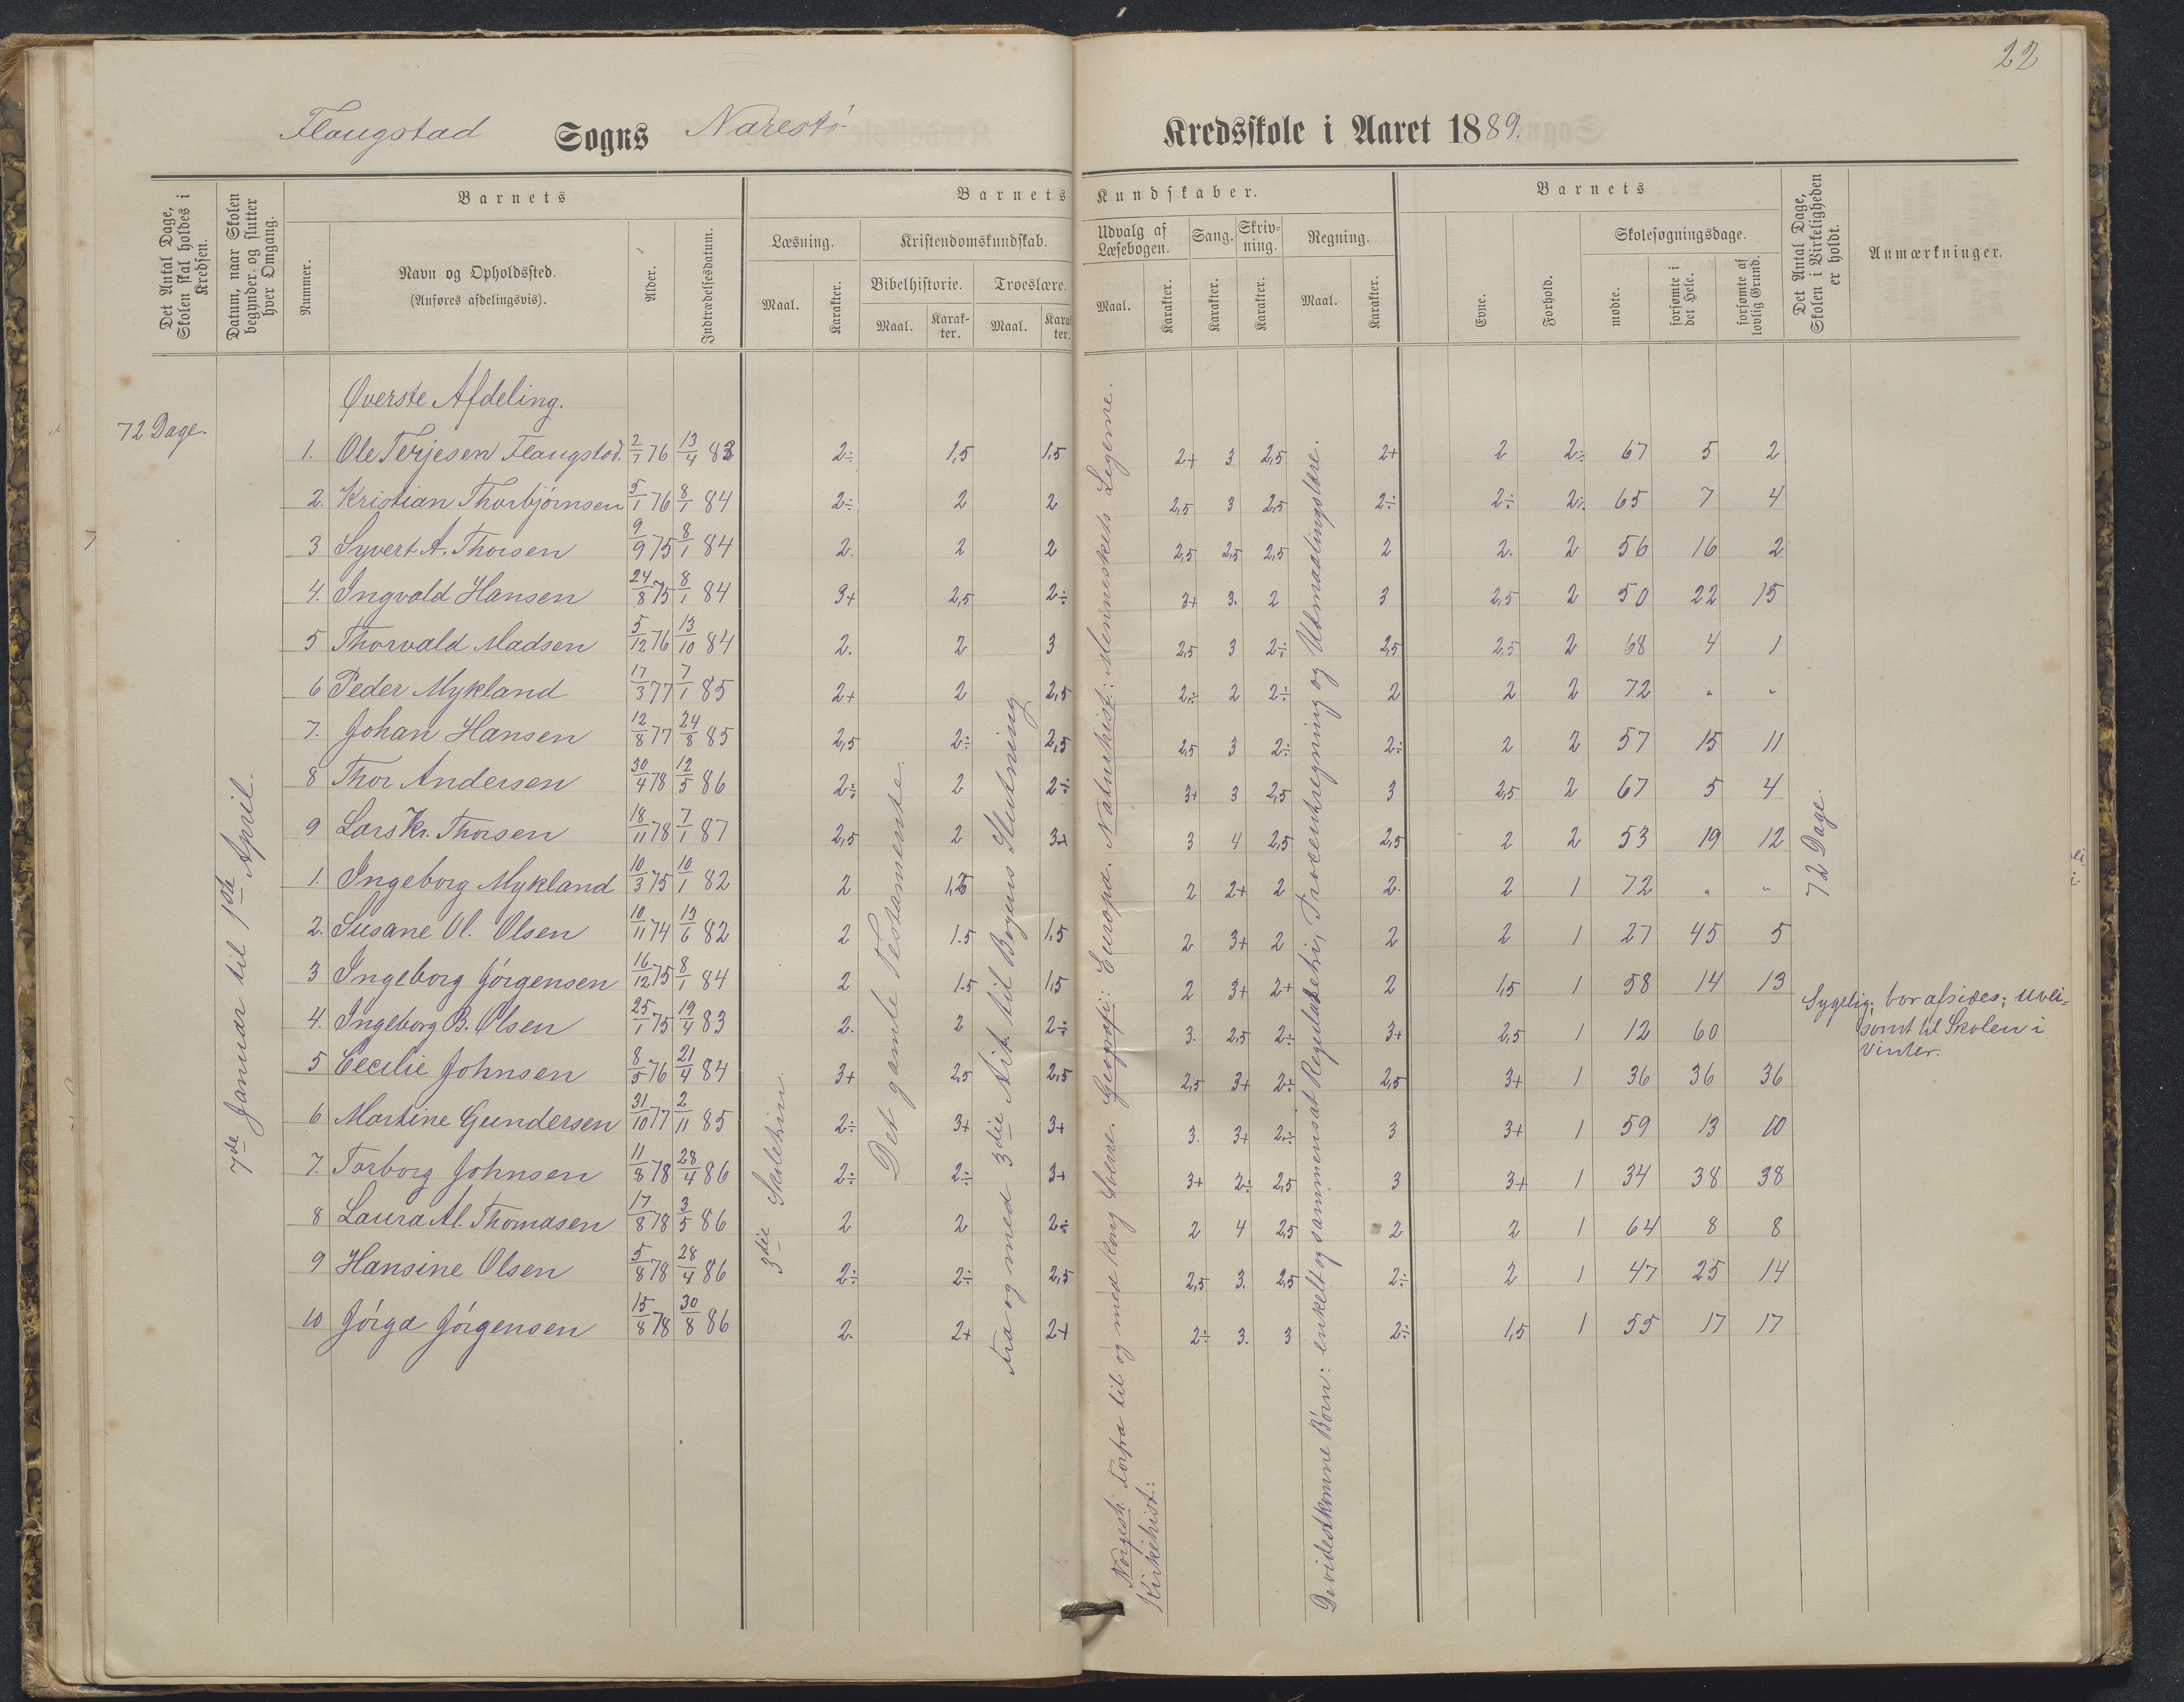 22
Flaugstad Sogns Narestö Kredsskole i Aaret 1889.
Det Antal Dage, Skolen skal holdes i Kredsen.
Datum, naar Skolen begynder og slutter hver Omgang.
Barnets
Nummer.
Navn og Opholdssted.
(Anføres afdelingsvis).
Alder.
Indtrædelsesdatum.
Barnets Kundskaber.
Læsning.
Maal. Karakter.
Kristendomskundskab.
Bibelhistorie. Troeslære.
Maal. Karakter. Maal. Karakter.
Udvalg af Læsebogen.
Maal. Karakter.
Sang. Karakter.
Skrivning. Karakter.
Regning.
Maal. Karakter.
Barnets
Evne. Forhold.
Skolesøgningsdage.
mødte. forsømte i det Hele. forsømte af lovlig Grund.
Det Antal Dage, Skolen i Virkeligheden er holdt.
Anmærkninger.
Øverste Afdeling.
72 Dage.
7de Januar til 1ste April.
1. Ole Terjesen Flaugstad. 2/1 76 13/4 83 2÷ 1,5 1,5 2+ 3 2,5 2+ 2 2÷ 67 5 2
2. Kristian Thorbjörnsen 5/1 76 8/1 84 2÷ 2 2 2,5 3 2,5 2÷ 2÷ 2÷ 65 7 4
3 Syvert A. Thorsen 9/9 75 8/1 84 2. 2 2 2,5 2,5 2,5 2 2. 2 56 16 2
4. Ingvald Hansen 24/8 75 8/1 84 3+ 2,5 2÷ 3+ 3. 2 3 2,5 2 50 22 15
5 Thorvald Madsen 5/12 76 13/10 84 2. 2 3 2,5 3 2÷ 2,5 2,5 2 68 4 1
6 Peder Mykland 17/3 77 7/1 85 2+ 2 2,5 2÷ 2 2÷ 2 2 2 72 " "
7. Johan Hansen 12/8 77 24/8 85 2,5 2÷ 2,5 2,5 3 2÷ 2÷ 2 2 57 15 11
8 Thor Andersen 30/4 78 12/5 86 2÷ 2 2÷ 3+ 3 2,5 3 2,5 2 67 5 4
9 Lars Kr. Thorsen 18/11 78 7/1 87 2,5 2 3+ 3 4 2,5 2,5 2 2 53 19 12
1. Ingeborg Mykland 10/3 75 10/1 82 2 1,5 2 2+ 2 2. 2 1 72 " "
2. Susane Ol. Olsen 10/11 74 15/6 82 2 1.5 1,5 2 3+ 2 2 2 1 27 45 5
3 Ingeborg Jörgensen 16/12 75 8/1 84 2 1.5 1,5 2 3+ 2+ 2 1,5 1 58 14 13
4. Ingeborg B. Olsen 25/1 75 19/4 83 2. 2 2÷ 3. 2,5 2÷ 3+ 2,5 1 12 60 Sygelig; bor afsides; uvei-
somt til Skolen i
Vinter.
5 Cecilie Johnsen 8/5 76 21/4 84 3+ 2,5 2,5 2,5 3+ 2÷ 2,5 3+ 1 36 36 36
6 Martine Gundersen 31/10 77 2/11 85 2÷ 3+ 3+ 3. 3+ 2÷ 3 3+ 1 59 13 10
7. Torborg Johnsen 11/8 78 28/4 86 2÷ 2÷ 3+ 3+ 2÷ 2,5 3 3+ 1 34 38 38
8 Laura Al. Thomasen 17/8 78 3/5 86 2 2 2÷ 2 4 2,5 2 2 1 64 8 8
9 Hansine Olsen 5/8 78 28/4 86 2÷ 2÷ 2,5 2,5 3. 2,5 2÷ 2 1 47 25 14
10 Jörga Jörgensen 15/8 78 30/8 86 2. 2+ 2+ 2÷ 3. 3 2÷ 1,5 1 55 17 17
3die Skoletrin.
Det gamle Testamente.
Fra og med 3die Art. til Bogens Slutning.
Norgesh. Forfra til og med Kong Sverre. Geografi: Europa. Naturhist: Menneskets Legeme.
Kirkehist:
De videstkomne Börn: enkelt og sammensat Reguladetri, Procentregning og Udmaalingslære.
72 Dage.